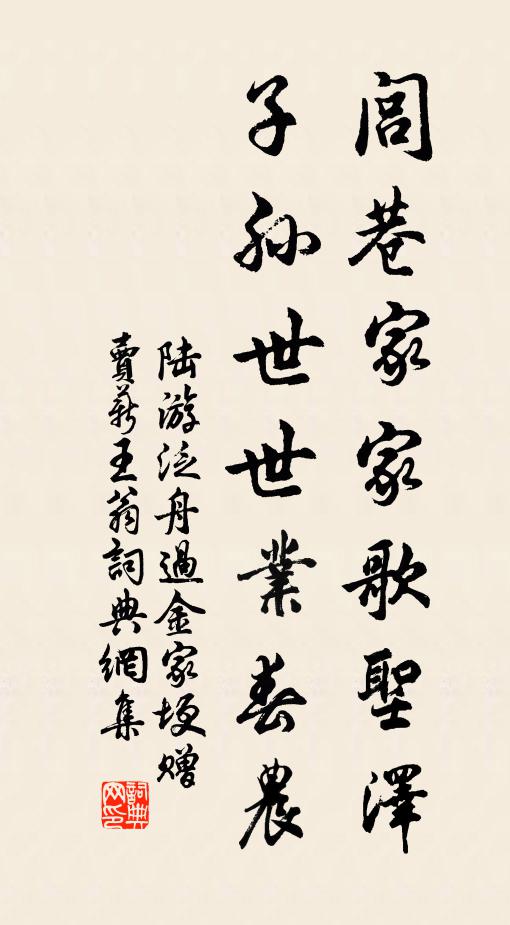 閭巷家家歌聖澤
子孫世世業春農
陸游泛舟過金家埂贈
賣薪王翁詞典網集
詞典网印